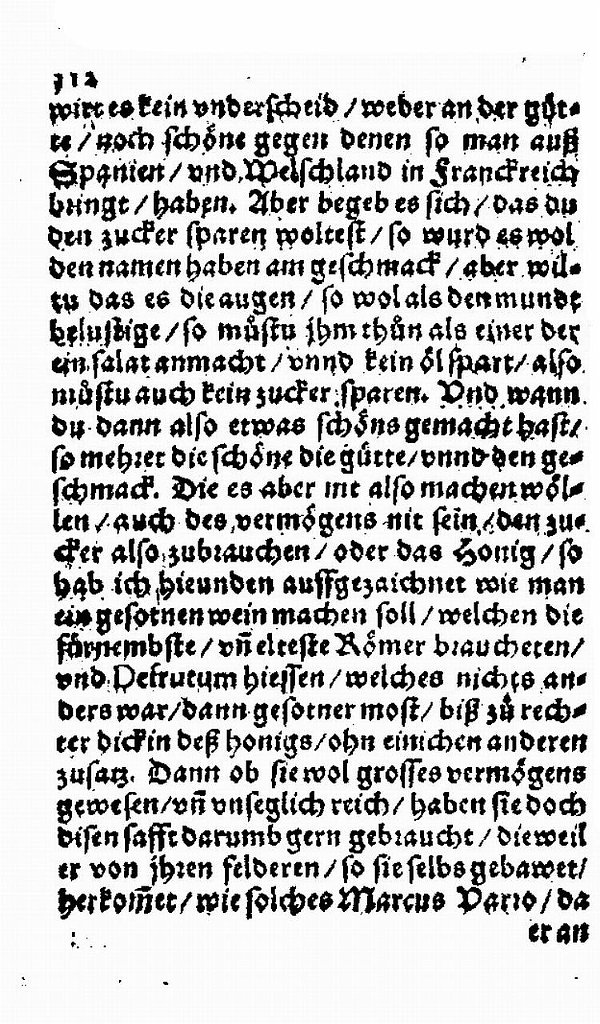 312
wirt es kein vnderscheid / weder an der güt-
te / noch schöne gegen denen so man auß
Spanien / vnd Welschland in Franckreich
bringt / haben. Aber begeb es sich / das du
den zucker sparen woltest / so wurd es wol
den namen haben am geschmack / aber wil-
tu das es die augen / so wol als den mundt
belustige / so můstu jhm thůn als einer der
ein salat anmacht / vnnd kein öl spart / also
můstu auch kein zucker sparen. Vnd wann
du dann also etwas schöns gemacht hast /
so mehret die schöne die gütte / vnnd den ge-
schmack. Die es aber nit also machen wöl-
len / auch des vermögens nit sein / den zu-
cker also zubrauchen / oder das Honig / so
hab ich hieunden auffgezaichnet wie man
ein gesotnen wein machen soll / welchen die
fürnembste / vñ elteste Römer braucheten /
vnd Defrutum hiessen / welches nichts an-
ders war / dann gesotner most / biß zů rech-
ter dick in deß honigs / ohn einichen anderen
zusatz. Dann ob sie wol grosses vermögens
gewesen / vñ vnseglich reich / haben sie doch
disen safft darumb gern gebraucht / dieweil
er von jhren felderen / so sie selbs gebawet /
herkom̃et / wie solches Marcus Varro / da
er an